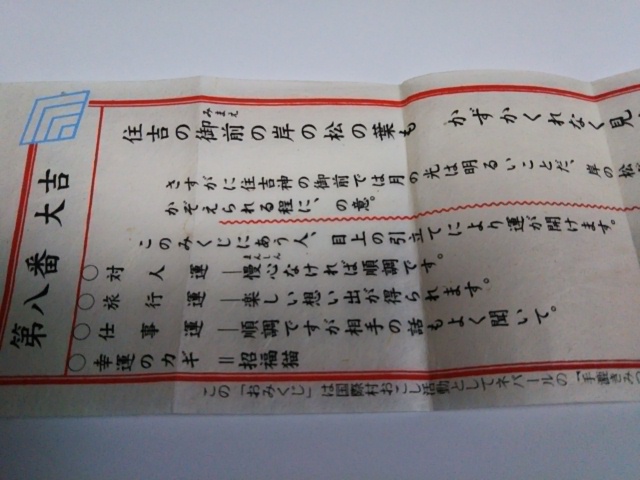 第八番 大吉
住吉の御前の岸の松の葉も かずかくれなく見
みまえ
さすがに住吉神の御前では月の光は明るいことだ、岸の松が
かぞえられる程に、の意。
このみくじにあう人、目上の引立てにより運が開けます。
○対人運―慢心なければ順調です。
まんしん
○旅行運―楽しい想い出が得られます。
○仕事運―順調ですが相手の話もよく聞いて。
○幸運のカギ＝招福猫
この「おみくじ」は国際村おこし活動としてネパールの「手漉きみつ